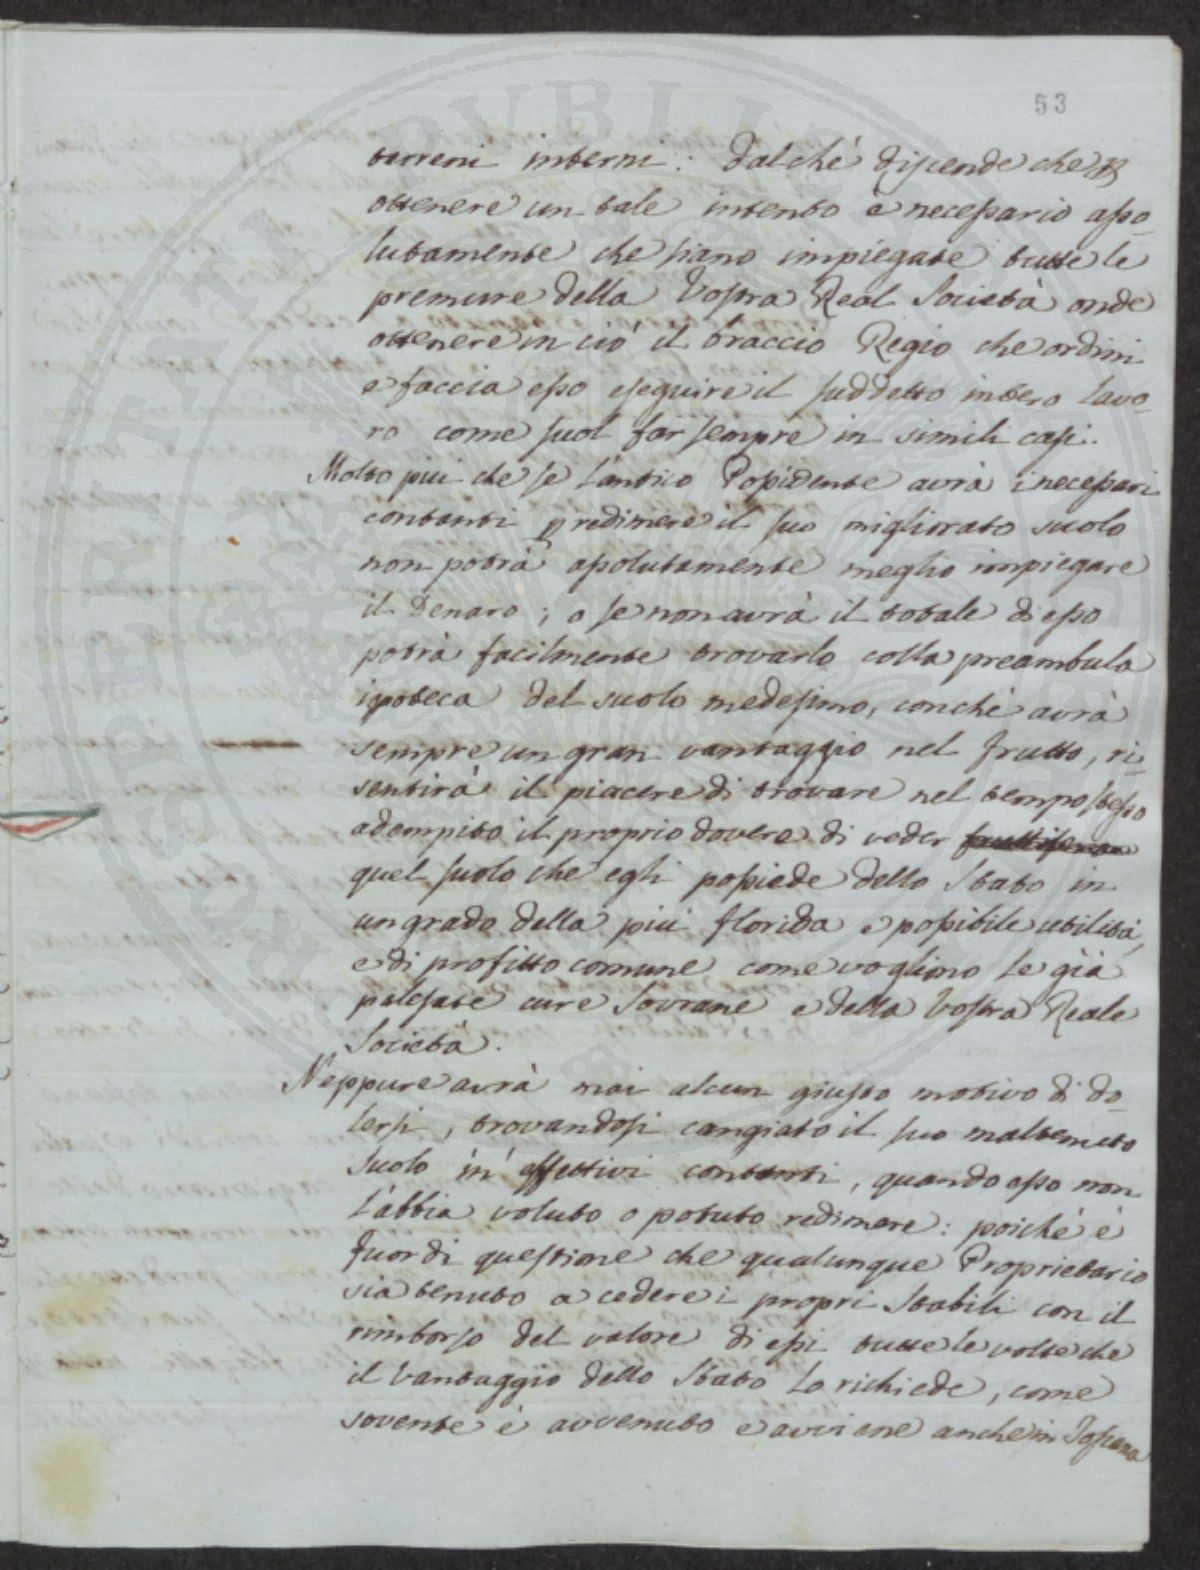 53
terreni interni: dalchè discende che p
ottenere un tale intento è necessario asso-
lutamente che siano impiegate tutte le
premure della Vostra Real Società onde
ottenere in ciò il braccio Regio che ordini
e faccia esso eseguire il suddetto intero lavo-
ro come suol far sempre in simili casi.
Molto più che se l'antico Possidente avrà i necessari
contanti p redimere il suo migliorato suolo
non potrà assolutamente meglio impiegare
il Denaro; o se non avrà il totale di esso
potrà facilmente trovarlo colla preambula
ipoteca del suolo medesimo, conchè avrà
sempre un gran vantaggio nel frutto, ri-
sentirà il piacere di trovare nel tempo stesso
adempito il proprio dovere di veder
quel suolo che egli possiede dello Stato in
un grado della più florida e possibile utilità,
e di profitto comune come vogliono le già
palesate cure Sovrane e della Vostra Reale
Società.
Neppure avrà mai alcun giusto motivo di do-
lersi, trovandosi cangiato il suo maltenuto
suolo in effettivi contanti, quando esso non
l'abbia voluto o potuto redimere: poichè è
fuor di questione che qualunque Proprietario
sia tenuto a cedere i propri Stabili con il
rimborso del valore di essi tutte le volte che
il vantaggio dello Stato lo richiede, come
sovente è avvenuto e avviene anche in Toscana
PROSPERITATI PUBLICAE